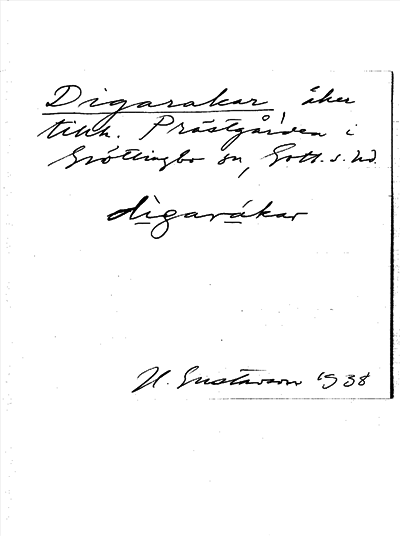 Digarakar, åker
tillh. Prästgården i
Gröttingbo sn, Gotl. s. hd.
dìgarákar
H. Gustavson 1938